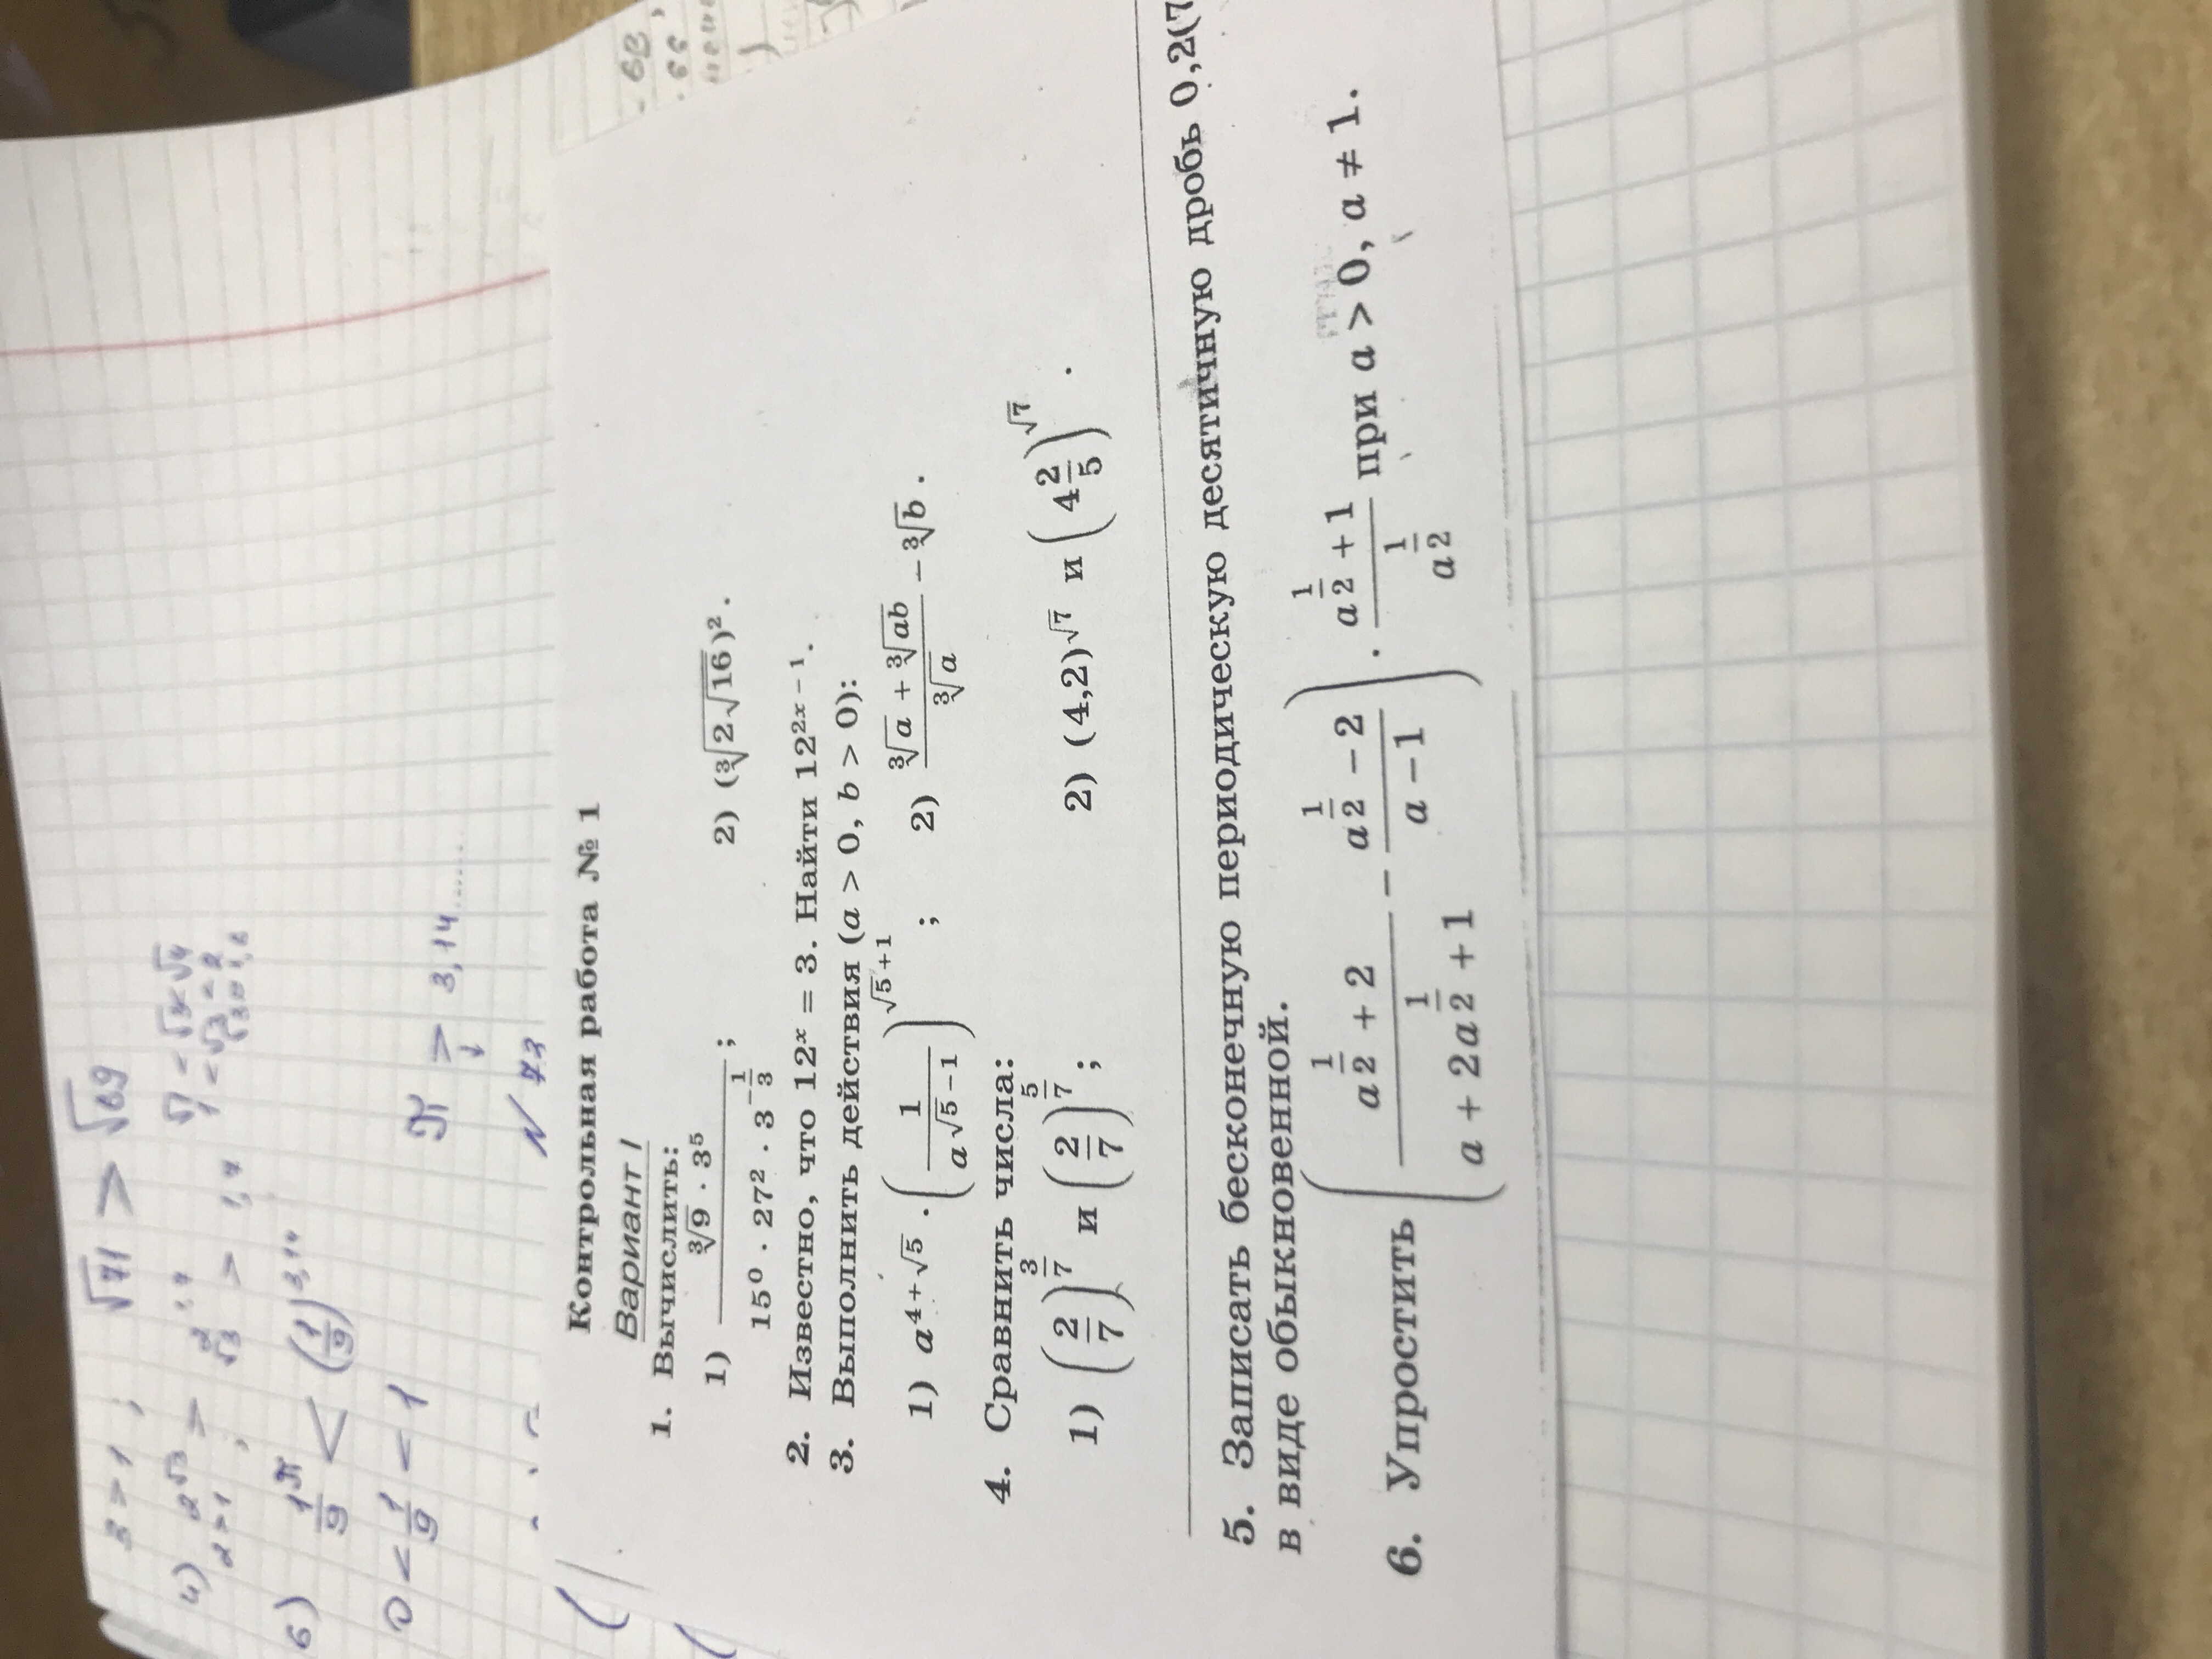 3 > 1 ; √71 > √69
4) 2^√3 > 2^1,7 √1 < √3 < √4
2 > 1 , √3 > 1,7
6) 1/9^π < (1/9)^3,14
0 < 1/9 < 1 π > 3,14......
N 73
Контрольная работа № 1
Вариант I
1. Вычислить:
1) (∛9 · 3⁵)/(15⁰ · 27² · 3^(−1/3)) ; 2) (∛(2√16))² .
2. Известно, что 12^x = 3. Найти 12^(2x − 1).
3. Выполнить действия (a > 0, b > 0):
1) a^(4 + √5) · (1/a^(√5 − 1))^(√5 + 1) ; 2) (∛a + ∛(ab))/∛a − ∛b .
4. Сравнить числа:
1) (2/7)^(3/7) и (2/7)^(5/7) ; 2) (4,2)^√7 и (4 2/5)^√7 .
5. Записать бесконечную периодическую десятичную дробь 0,2(7
в виде обыкновенной.
6. Упростить ((a^(1/2) + 2)/(a + 2a^(1/2) + 1) − (a^(1/2) − 2)/(a − 1)) · (a^(1/2) + 1)/a^(1/2) при a > 0, a ≠ 1.